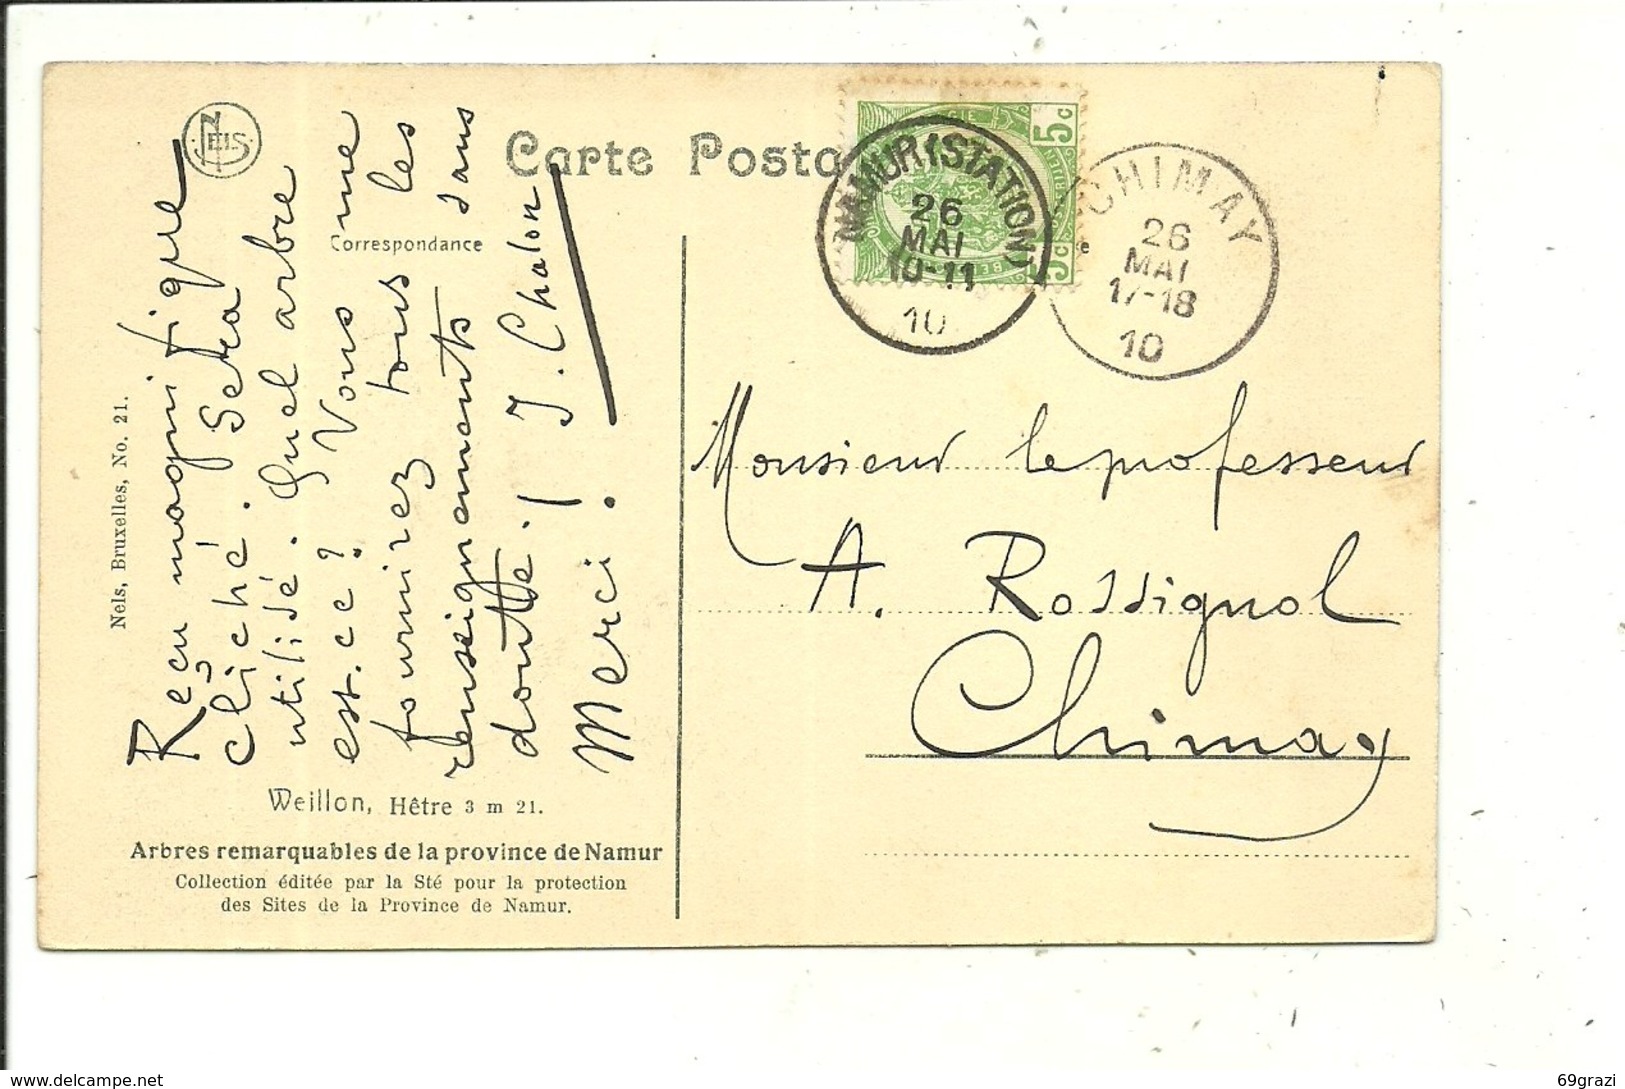 Carte Posta
Correspondance
NELS
Nels, Bruxelles, No. 21.
Reçu magnifique
cliché. Sera
utilisé. Quel arbre
est-ce? Vous me
fournirez tous les
renseignements sans
doute! J. Chalon
Merci!
Weillon, Hêtre 3 m 21.
Arbres remarquables de la province de Namur
Collection éditée par la Sté pour la protection
des Sites de la Province de Namur.
5c
5c
NAMUR (STATION)
26
MAI
10-11
10
CHIMAY
26
MAI
17-18
10
Monsieur le professeur
A. Rossignol
Chimay
69grazi
delcampe.net